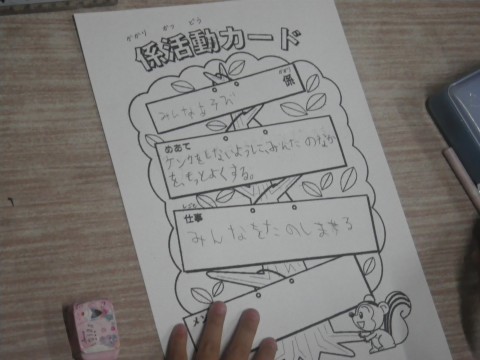 かかり かつ どう
係活動カード
かかり
みんなあそび 係
めあて
ケンカをしないようにみんなのなか
をもっとよくする。
しごと
仕事
みんなをたのしませる
メン